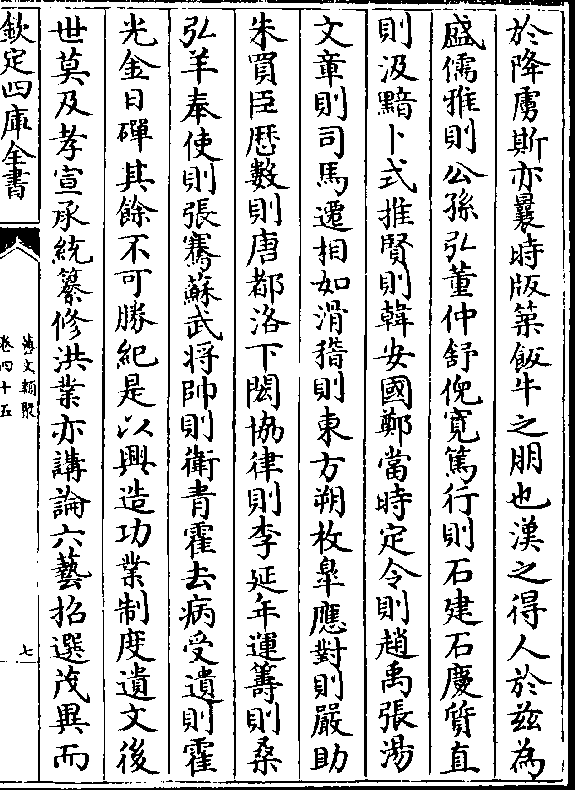 於降虜斯亦曩時版築飯牛之朋也漢之得人於兹為
盛儒雅則公孫弘董仲舒倪寛篤行則石建石慶質直
則汲黯卜式推賢則韓安國鄭當時定令則趙禹張湯
文章則司馬遷相如滑稽則東方朔枚臯應對則嚴助
朱買臣歴數則唐都洛下閎協律則李延年運籌則桑
弘羊奉使則張騫蘇武将帥則衛青霍去病受遺則霍
光金日磾其餘不可勝紀是以興造功業制度遺文後
世莫及孝宣承統纂修洪業亦講論六藝招選茂異而
欽定四庫全書
藝文類聚
卷四十五
七